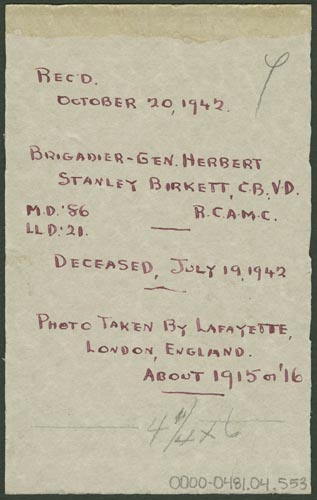 REC'D.
OCTOBER 20, 1942.
BRIGADIER-GEN. HERBERT
STANLEY BIRKETT, C.B., V.D.
M.D. '86 R.C.A.M.C.
LL.D. '21.
DECEASED, JULY 19, 1942
PHOTO TAKEN BY LAFAYETTE,
LONDON, ENGLAND.
ABOUT 1915 or '16
0000-0481.04.553